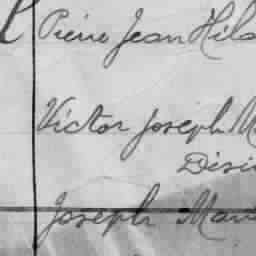 Pierre Jean Hila
Victor Joseph M
Dési
Joseph Mari